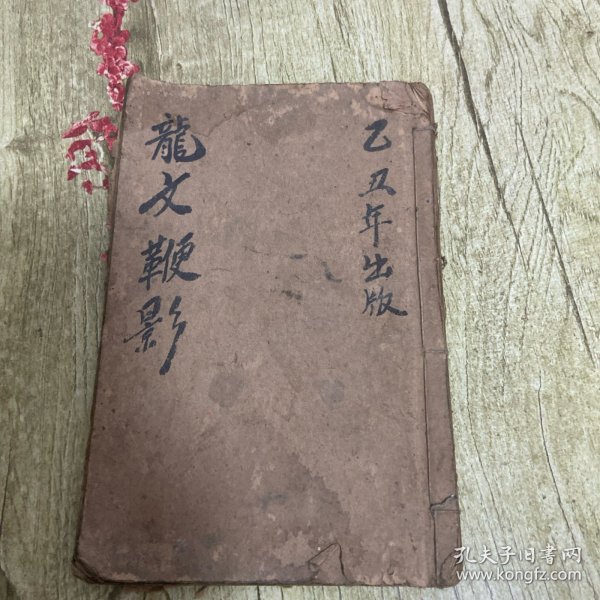 乙丑年出版
龍文鞭影
孔夫子旧书网
www.kongfz.com